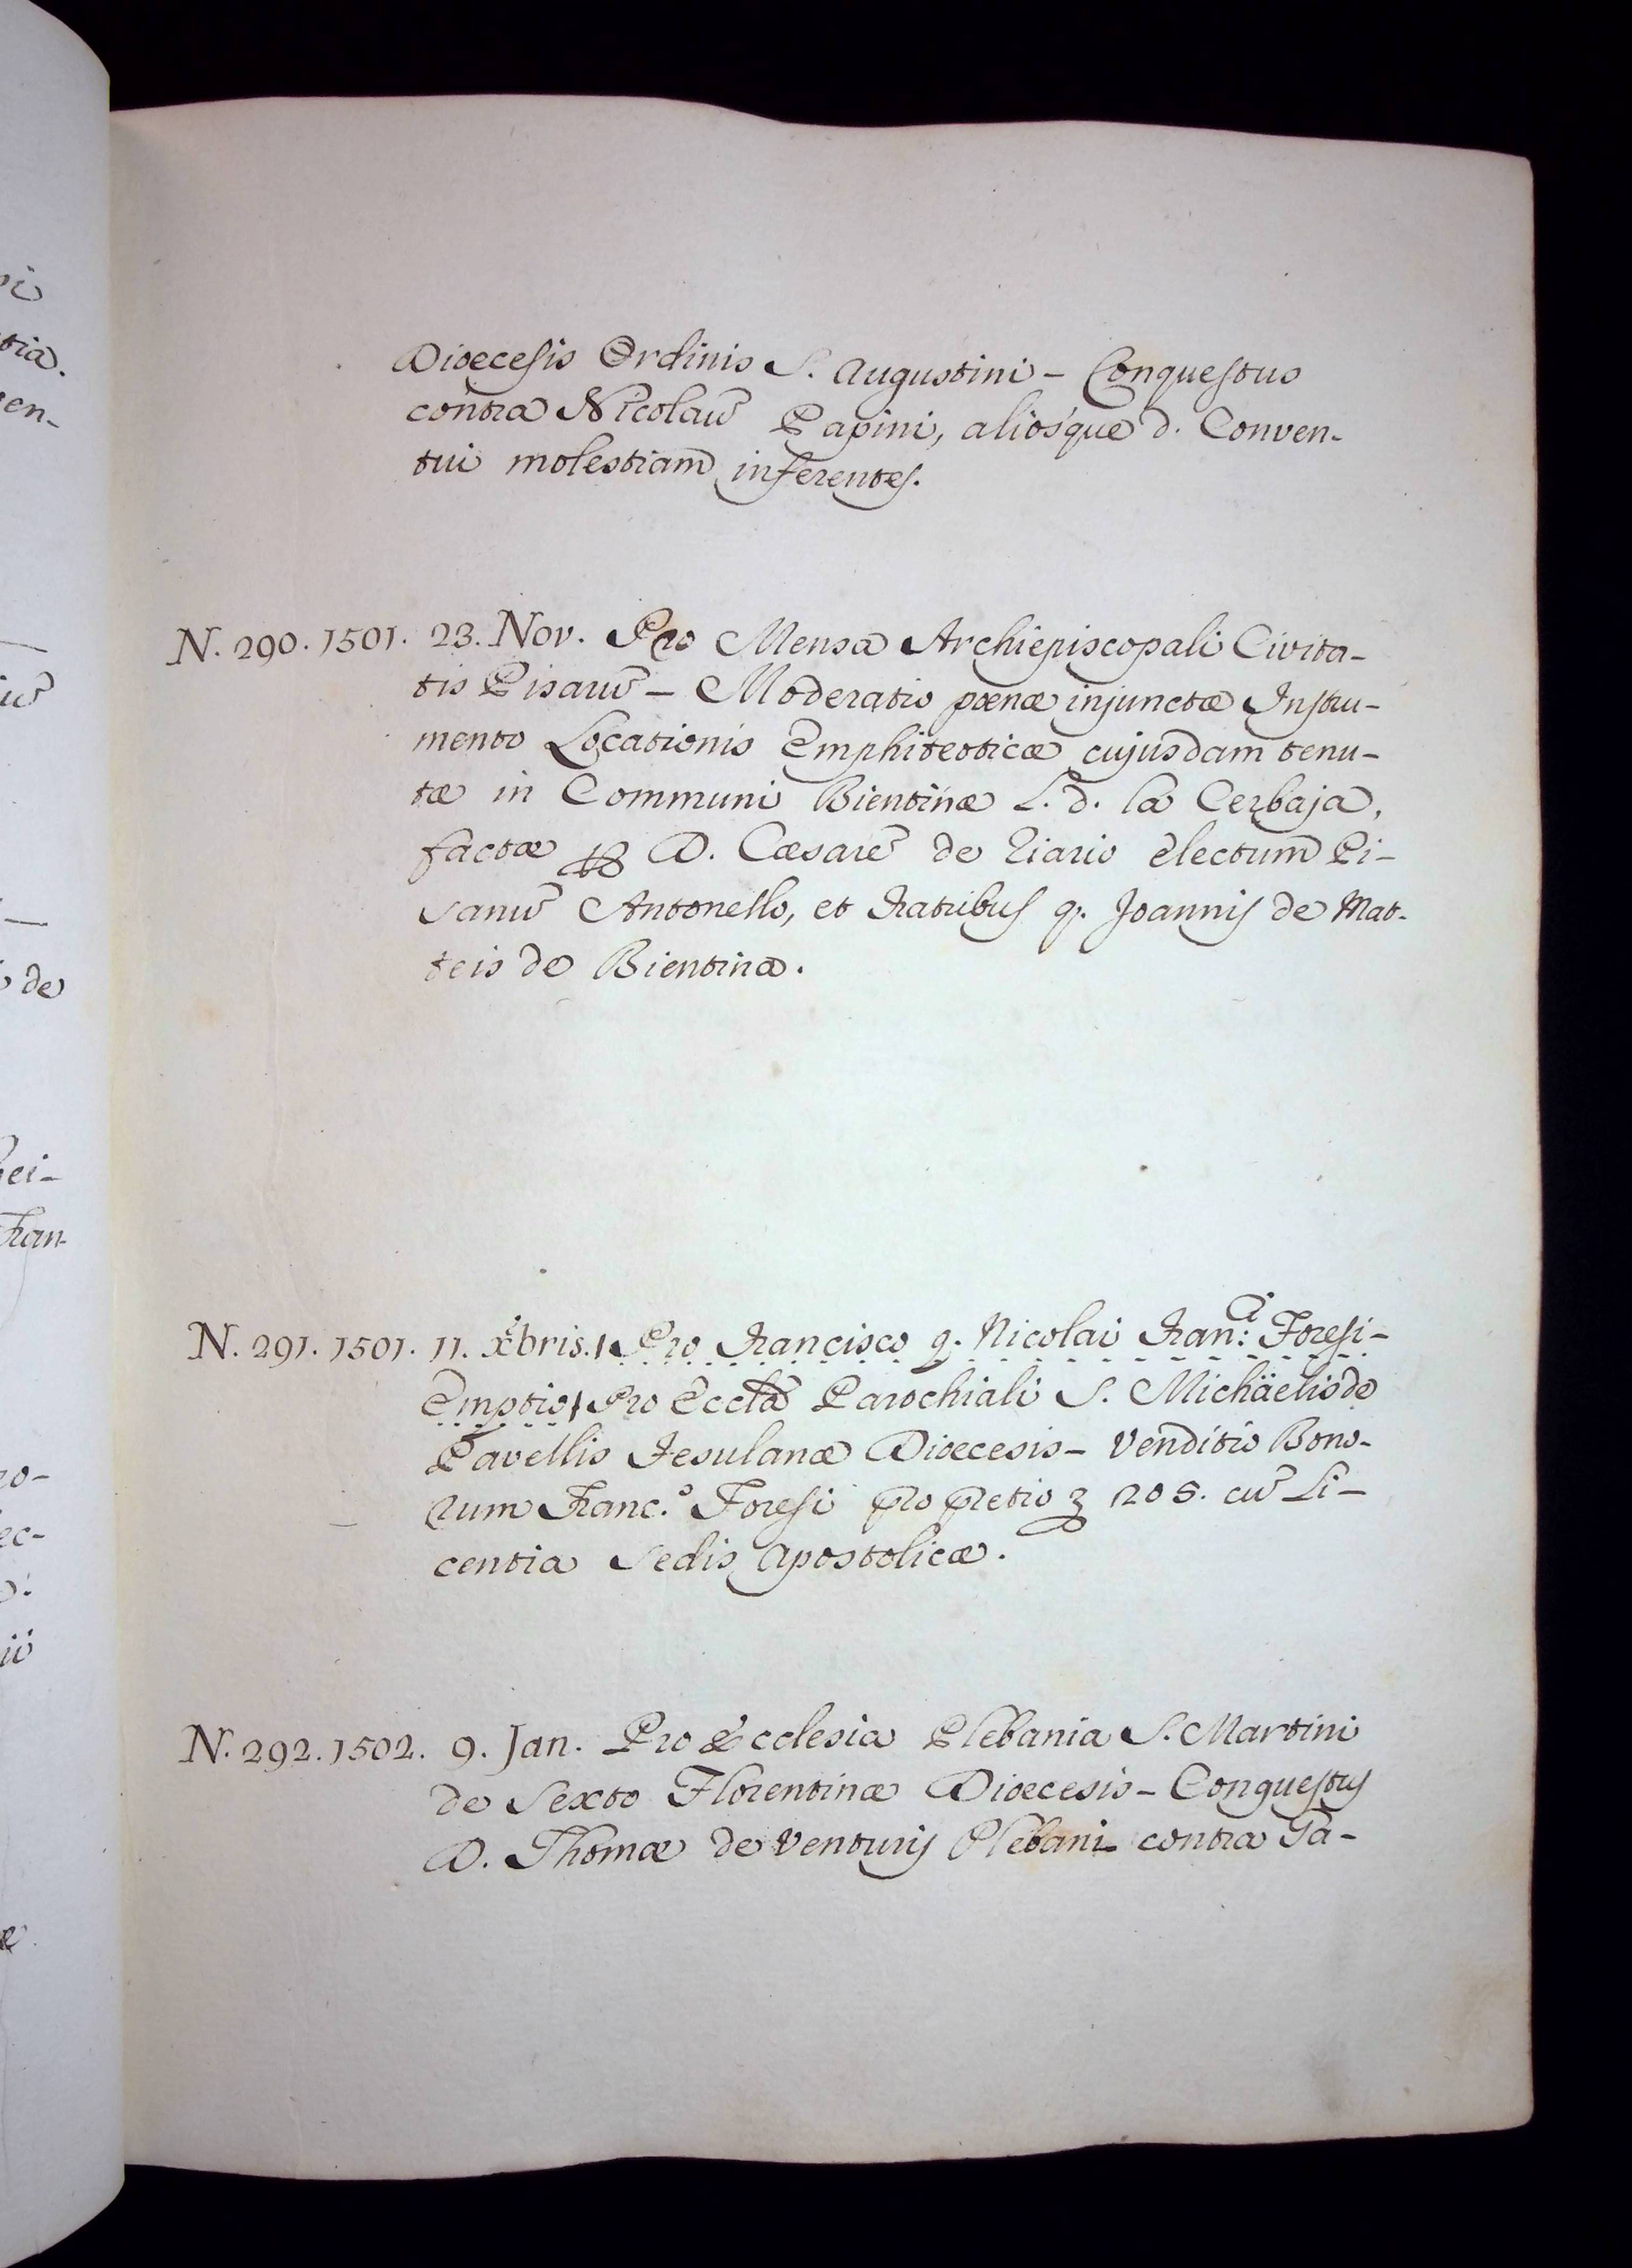 Dioecesis Ordinis S. Augustini – Conquestus
contra Nicolaū Papini, aliosque d. Conven-
tui molestiam inferentes.
N. 290. 1501. 23. Nov. Pro Mensa Archiepiscopali Civita-
tis Pisarū – Moderatio pœnæ injunctæ Instru-
mento Locationis Emphiteoticæ cujusdam tenu-
tæ in Communi Bientinæ L. d. la Cerbaja,
factæ D. Cæsarē de Riario electum Pi-
sanū Antonello, et Fratribus q. Joannis de Mat-
teis de Bientina.
N. 291. 1501. 11. Xbris. Pro Francisco q. Nicolai Fran:ci Foresi –
Emptio / Pro Eccla Parochiali S. Michäelis de
Pavellis Fesulanæ Dioecesis – Venditio Bono-
rum Franc.º Foresi pro pretio 205. cū Li-
centia Sedis Apostolicæ.
N. 292. 1502. 9. Jan. Pro Ecclesia Plebania S. Martini
de Sexto Florentinæ Dioecesis – Conquestus
D. Thomæ de Venturis Plebani contra Ta-
pi
tia.
en-
iū
de
hei-
Fran-
ro-
ec-
ii